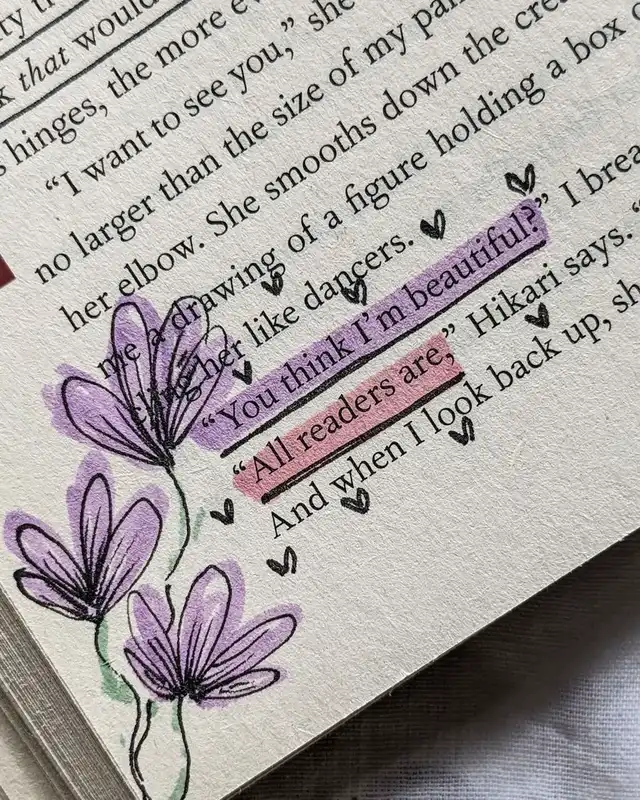 that would
hinges, the more
“I want to see you,” she
no larger than the size of my
her elbow. She smooths down the
me a drawing of a figure holding a box
cling her like dancers.
“You think I’m beautiful?” I
“All readers are,” Hikari says.
And when I look back up,